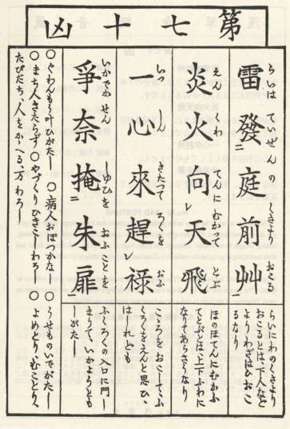 第七十凶
雷發庭前艸
らいは ていぜんの くさより おこる
炎火向天飛
えん くわ てんに むかて とぶ
一心來趕祿
いつ しん きたつて ろくを おふ
爭奈掩朱扉
いかでかせん しゆひを おふことを
らいにわのくさより
おこるとは、下人など
よりわざはひおこ
るなり
ほのほてんにむかふ
てとぶとは、上下ふわに
なりてあらさうなり
こころをおこしてふ
くろくをえんと思ひ
はしれども
ふくろくの入口に門し
まりて、いかんとも
がたし
○くわんもう叶ひがたし ○病人おぼつかなし ○うせものいでがたし
○まち人きたらず ○やづくりひきこしわろし ○よめとり、むことり、
たびだち、人をかゝへる、万わろし